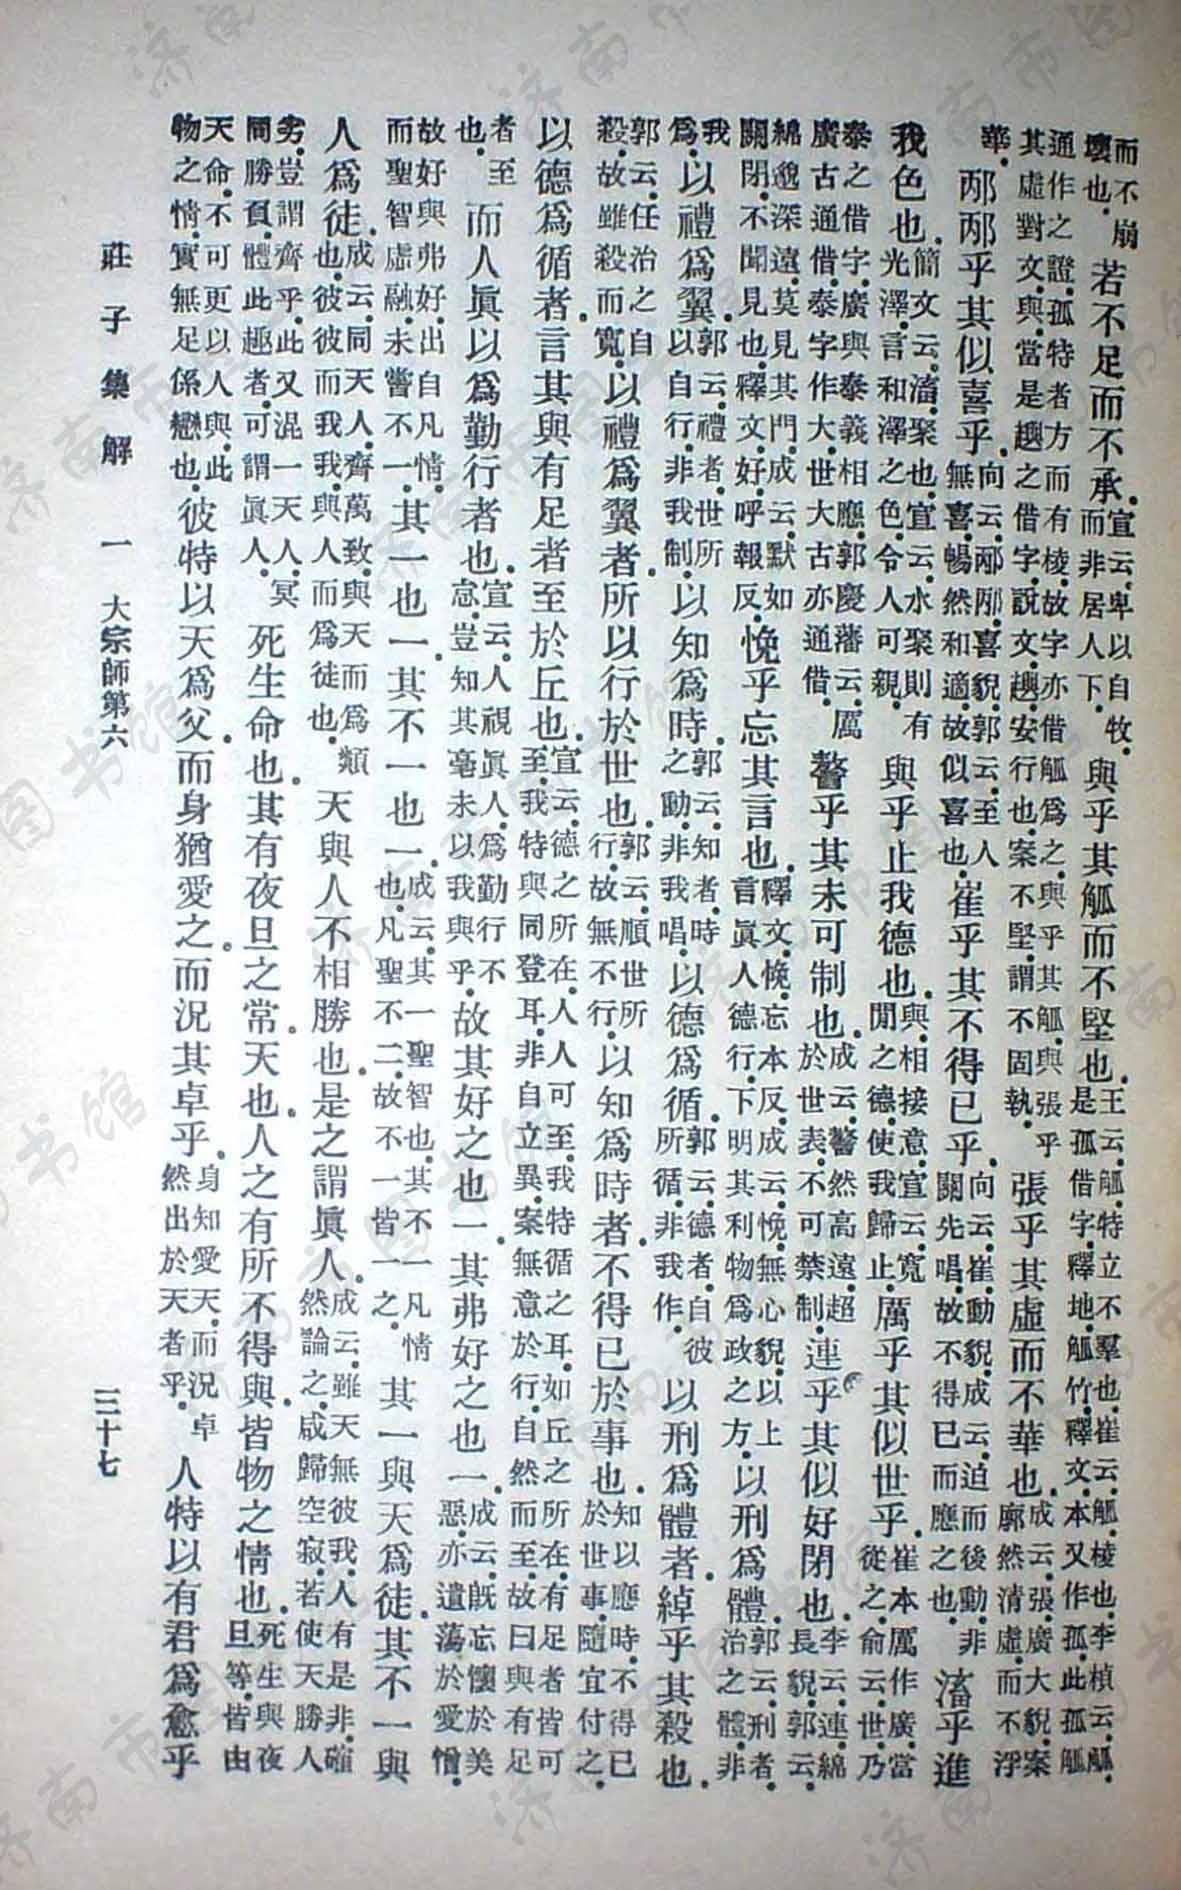 而不崩壞也。若不足而不承。宣云。卑以自牧。而非居人下。與乎其觚而不堅也。王云。觚。特立不羣也。崔云。觚。棱也。李楨云。觚。是孤借字。釋地。觚竹。釋文。本又作孤。此孤觚
通作之證。孤特者方而有棱。故字亦借觚爲之。與乎其觚。與張乎其虛對文。與。當是趣之借字。說文。趣。安行也。案不堅。謂不固執。張乎其虛而不華也。成云。張。廣大貌。案廓然清虛。而不浮
華。邴邴乎其似喜乎。向云。邴邴。喜貌。郭云。至人無喜。暢然和適。故似喜也。崔乎其不得已乎。向云。崔。動貌。成云。迫而後動。非關先唱。故不得已而應之也。滀乎進
我色也。簡文云。滀。聚也。宣云。水聚則有光澤。言和澤之色。令人可親。與乎止我德也。與相接意。宣云。寬閒之德。使我歸止。厲乎其似世乎。崔本厲作廣。當從之。俞云。世乃
泰之借字。廣與泰義相應。郭慶藩云。厲廣古通借。泰字作大。世大古亦通借。謷乎其未可制也。成云。謷然高遠。超於世表。不可禁制。連乎其似好閉也。李云。連。綿長貌。郭云。綿
綿邈深遠。莫見其門。成云。默如關閉。不聞見也。釋文。好。呼報反。悗乎忘其言也。釋文。悗。忘本反。成云。悗。無心貌。以上言眞人德行。下明其利物爲政之方。以刑爲體。郭云。刑者治之體。非
我爲。以禮爲翼。郭云。禮者。世所以自行。非我制。以知爲時。郭云。知者。時之動。非我唱。以德爲循。郭云。德者。自彼所循。非我作。以刑爲體者。綽乎其殺也。
郭云。任治之自殺。故雖殺而寬。以禮爲翼者。所以行於世也。郭云。順世所行。故無不行。以知爲時者。不得已於事也。知以應時。不得已於世事。隨宜付之。
以德爲循者。言其與有足者至於丘也。宣云。德之所在。人人可至。我特循之耳。如丘之所在。有足者皆可至。我特與同登耳。非自立異。案無意於行。自然而至。故曰與有足
者至也。而人眞以爲勤行者也。宣云。人視眞人。爲勤行不怠。豈知其毫未以我與乎。故其好之也一。其弗好之也一。成云。旣忘懷於美惡。亦遣蕩於愛憎。
故好與弗好。出自凡情。而聖智虛融。未嘗不一。其一也一。其不一也一。成云。其一。聖智也。其不一。凡情也。凡聖不二。故不一皆一之。其一與天爲徒。其不一與
人爲徒。成云。同天人。齊萬致。與天而爲類也。彼彼而我我。與人而爲徒也。天與人不相勝也。是之謂眞人。成云。雖天無彼我。人有是非。確然論之。咸歸空寂。若使天勝人
劣。豈謂齊乎。此又混一天人。冥同勝負。體此趣者。可謂眞人。死生命也。其有夜旦之常。天也。人之有所不得與。皆物之情也。死生與夜旦等。皆由
天命。不可更以人與。此物之情。實無足係戀也。彼特以天爲父。而身猶愛之。而況其卓乎。身知愛天。而況卓然出於天者乎。人特以有君爲愈乎
莊子集解 一 大宗師第六 三十七
济南市图书馆